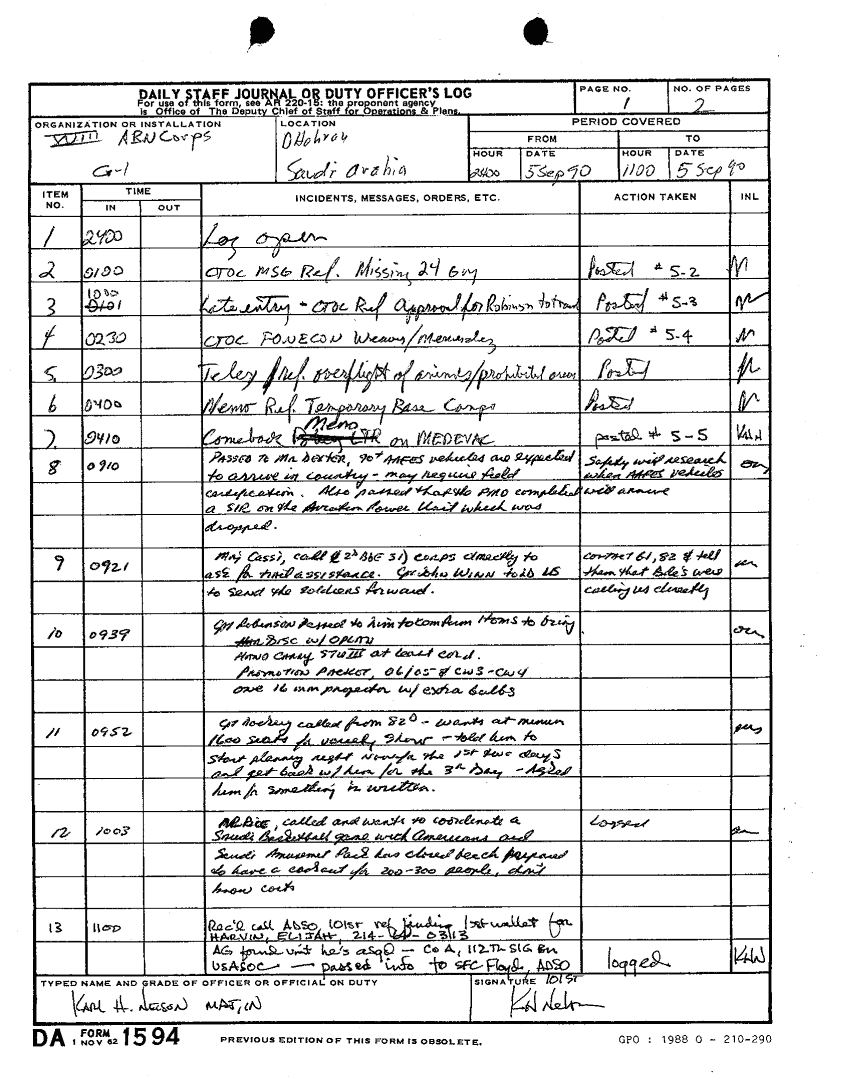 DAILY STAFF JOURNAL OR DUTY OFFICER'S LOG
For use of this form, see AR 220-15; the proponent agency
is Office of The Deputy Chief of Staff for Operations & Plans.
PAGE NO.
1
NO. OF PAGES
2
ORGANIZATION OR INSTALLATION
XVIII ABN Corps
G-1
LOCATION
Dhahran
Saudi Arabia
PERIOD COVERED
FROM
TO
HOUR
DATE
HOUR
DATE
2400
5 Sep 90
1100
5 Sep 90
ITEM NO.
TIME
IN
OUT
INCIDENTS, MESSAGES, ORDERS, ETC.
ACTION TAKEN
INL
1 2400 Log open
2 0100 CTOC MSG Ref. Missing 24 Posted # 5-2
3 1000 0101 Late entry - CTOC Ref Approval for Robinson to travel Posted # 5-3
4 0230 CTOC FONECON Weaver/Menendez Posted # 5-4
5. 0300 Telex ref. overflight of /prohibited areas Posted
6 0400 Memo Ref. Temporary Base Camps Posted
7. 0410 Comeback Memo on MEDEVAC posted # 5-5 KHN
8 0910 PASSED TO MR. DEXTER, 90+ AAFES vehicles are expected Safety will research
to arrive in country - may require field when AAFES vehicles
certification. Also passed that the PMO completed will arrive
a SIR on the Aviation Power Unit which was
dropped.
9 0921 Maj Cassi, call (2d BDE S1) corps directly to contact G1, 82d tell
ask for assistance. Cpt John WINN told us them that Bde's were
to send the soldiers forward. calling us directly
10 0939 Cpt Robinson passed to him to items to bring
DISC w/ OPLAN
HAND CARRY STU III at least cord.
PROMOTION PACKET, 06/05 & CW3-CW4
one 16 mm projector w/ extra bulbs
11 0952 Cpt called from 82D - wants at
1600 seats for variety show - told him to
start planning right now for the 1st two days
and get back w/ him for the 3rd Day - Asked
him for something in written.
12 1003 MR. RICE, called and wants to coordinate a Logged
Saudi Basketball game with Americans and
Saudi has closed beach prepared
to have a cookout for 200-300 people, don't
know costs
13 1100 Rec'd call ADSO, 101st ref finding lost wallet for
HARVIN, ELIJAH, 214-64-0313
AG found unit he's asgd - Co A, 112TH SIG BN
USASOC - passed info to SFC Floyd, ADSO logged KHN
101ST
TYPED NAME AND GRADE OF OFFICER OR OFFICIAL ON DUTY
KARL H. NELSON MAJ, IN
SIGNATURE
DA FORM 1 NOV 62 1594
PREVIOUS EDITION OF THIS FORM IS OBSOLETE.
GPO : 1988 O - 210-290